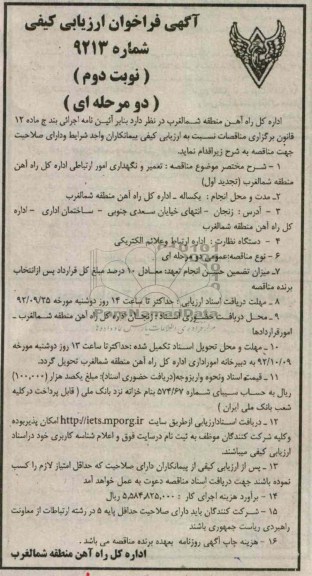 آگهی فراخوان ارزیابی کیفی
شماره ۹۲۱۳
( نوبت دوم )
( دو مرحله ای )
اداره کل راه آهن منطقه شمالغرب در نظر دارد بنابر آئین نامه اجرائی بند ج ماده ۱۲
قانون برگزاری مناقصات نسبت به ارزیابی کیفی پیمانکاران واجد شرایط ودارای صلاحیت
جهت مناقصه به شرح زیراقدام نماید.
۱ - شرح مختصر موضوع مناقصه : تعمیر و نگهداری امور ارتباطی اداره کل راه آهن
منطقه شمالغرب (تجدید اول)
۲- مدت و محل انجام : یکساله - اداره کل راه آهن منطقه شمالغرب
۳ - آدرس : زنجان - انتهای خیابان سعدی جنوبی - ساختمان اداری - اداره
کل راه آهن منطقه شمالغرب
۴ - دستگاه نظارت : اداره ارتباط وعلائم الکتریکی
۶ - نوع مناقصه:عمومی دو مرحله ای
۷- میزان تضمین حسن انجام تعهد: معادل ۱۰ درصد مبلغ کل قرارداد پس ازانتخاب
برنده مناقصه
۸ - مهلت دریافت اسناد ارزیابی : حداکثر تا ساعت ۱۴ روز دوشنبه مورخه ۹۲/۰۹/۲۵
۹ - محل دریافت حضوری اسناد : زنجان اداره کل راه آهن منطقه شمالغرب -
امور قراردادها
۱۰ - مهلت و محل تحویل اسناد تکمیل شده :حداکثرتا ساعت ۱۳ روز دوشنبه مورخه
۹۲/۱۰/۰۹ به دبیرخانه اموراداری اداره کل راه آهن منطقه شمالغرب تحویل گردد.
۱۱ - قیمت اسناد ونحوه واریزوجه(دریافت حضوری اسناد): مبلغ یکصد هزار (۱۰۰,۰۰۰)
ریال به حساب سیبای شماره ۵۷۴/۶۷ بنام خزانه نزد بانک ملی ( قابل پرداخت درکلیه
شعب بانک ملی ایران )
۱۲ - دریافت اسنادارزیابی ازطریق سایت http://iets.mporg.ir امکان پذیربوده
وکلیه شرکت کنندگان موظف به ثبت نام درسایت فوق و اعلام شناسه کاربری خود دراسناد
ارزیابی کیفی میباشند.
۱۳ - پس از ارزیابی کیفی از پیمانکاران دارای صلاحیت که حداقل امتیاز لازم را کسب
نموده باشند جهت دریافت اسناد مناقصه دعوت به عمل خواهد آمد
۱۴ - برآورد هزینه اجرای کار : ۵,۵۸۴,۸۲۵,۰۰۰ ریال
۱۵ - شرکت کنندگان باید دارای صلاحیت حداقل پایه ۵ در رشته ارتباطات از معاونت
راهبردی ریاست جمهوری باشند
۱۶ - هزینه چاپ آگهی روزنامه بعهده برنده مناقصه می باشد .
اداره کل راه آهن منطقه شمالغرب